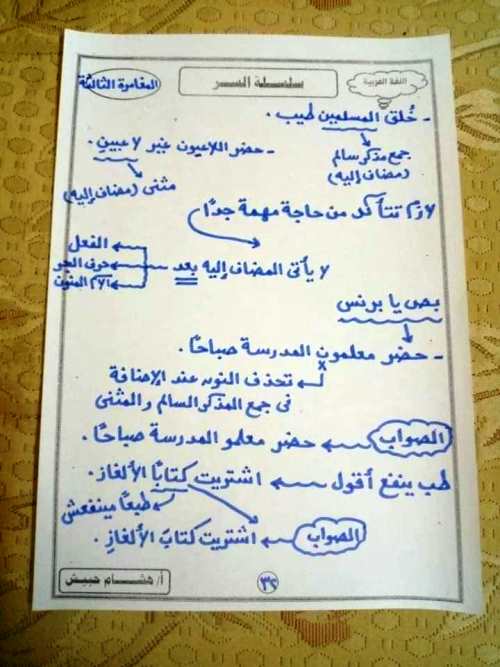 اللغة العربية
سلسلة السر
المغامرة الثالثة
- خُلق المسلمين طيب .
جمع مذكر سالم
(مضاف إليه)
- حضر اللاعبون غير لاعبينِ .
مثنى (مضاف إليه)
لازم تتأكد من حاجة مهمة جدًا
لا يأتى المضاف إليه بعد
الفعل
حرف الجر
الاسم المنون
بص يا برنس
- حضر معلمون المدرسة صباحًا .
x
تحذف النون عند الإضافة
فى جمع المذكر السالم والمثنى
الصواب حضر معلمو المدرسة صباحًا .
طب ينفع أقول اشتريت كتابًا الألغاز .
طبعًا مينفعش
الصواب اشتريت كتابَ الألغازِ .
٣٢
أ/ هشام حبيش